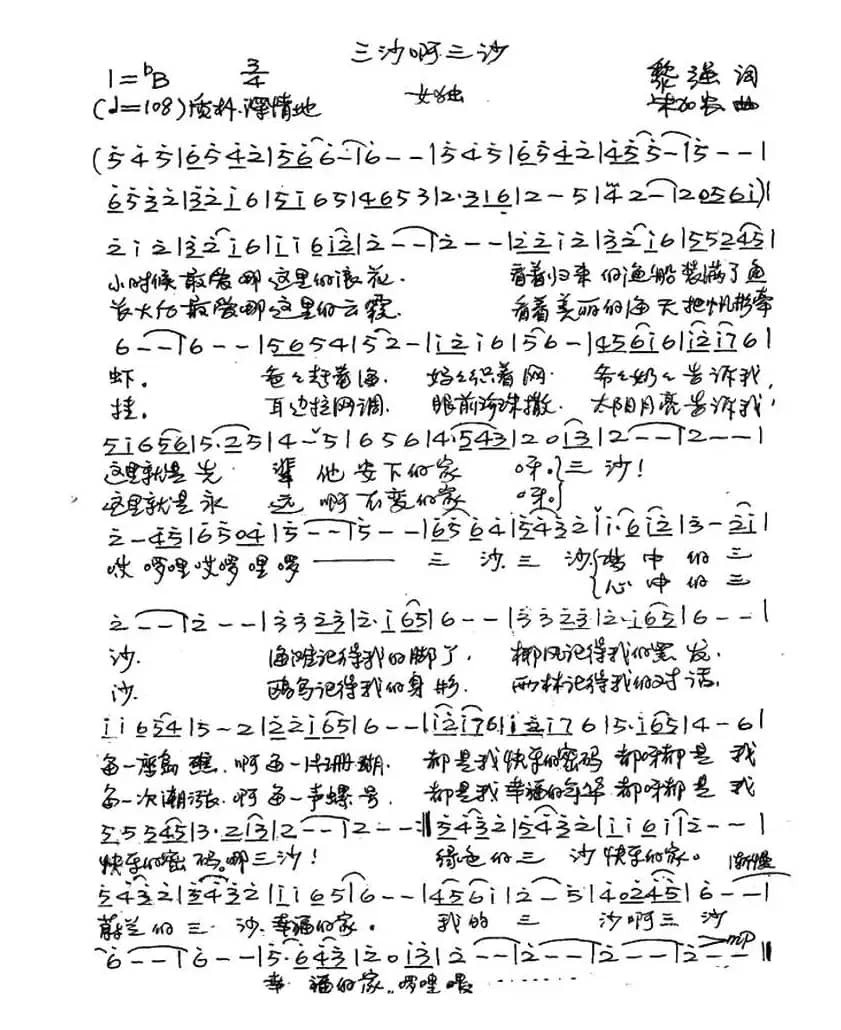 三沙啊三沙
1=ᵇB 3/4 黎强 词
(♩=108) 深情地 女独 曲
(5 4 5 | 6 5 4 2 | 5 6 6 - | 6 - - | 5 4 5 | 6 5 4 2 | 4 5 5 - | 5 - - |
6 5 3 2 | 3 2 1 6 | 5 1 6 5 | 4 6 5 3 | 2 · 3 1 6 | 2 - 5 | 4 2 - | 2 0 5 6 1) |
2 1 2 | 3 2 1 6 | 1 1 6 1 2 | 2 - - | 2 - - | 2 2 1 2 | 3 2 1 6 | 5 5 2 4 5 |
小时候最爱哪这里的浪花. 看着归来的渔船装满了鱼
长大后最爱哪这里的云霞. 看着美丽的海天把帆影牵
6 - - | 6 - - | 5 6 5 4 | 5 2 - | 1 2 1 6 | 5 6 - | 4 5 6 1 6 | 1 2 1 7 6 |
虾。 爸爸赶着海. 妈妈织着网. 爷爷奶奶告诉我,
挂。 耳边拉网调. 眼前珍珠撒. 太阳月亮告诉我,
5 1 6 5 6 | 5 · 2 5 | 4 - 5 | 6 5 6 | 4 · 5 4 3 | 2 0 1 3 | 2 - - | 2 - - |
这里就是先 辈 他安下的家 呀。三 沙!
这里就是永 远 啊不变的家 呀。
2 - 4 5 | 6 5 0 4 | 5 - - | 5 - - | 6 5 6 4 | 5 4 3 2 | 1 · 6 1 2 | 3 - 2 1 |
哎 啰哩哎啰哩啰 三 沙三 沙 梦中的三
心中的三
2 - - | 2 - - | 3 3 2 3 | 2 · 1 6 5 | 6 - - | 3 3 2 3 | 2 · 1 6 5 | 6 - - |
沙. 海滩记得我的脚丫. 椰风记得我的黑发.
沙. 鸥鸟记得我的身影. 雨林记得我的对话.
1 1 6 5 4 | 5 - 2 | 2 2 1 6 5 | 6 - - | 1 2 1 7 6 | 1 2 1 7 6 | 5 · 1 6 5 | 4 - 6 |
每一座岛礁. 啊每一片珊瑚. 都是我快乐的密码 都呀都是 我
每一次潮涨. 啊每一声螺号. 都是我幸福的年华 都呀都是 我
5 5 5 4 5 | 3 · 2 1 3 | 2 - - | 2 - - :‖ 5 4 3 2 | 5 4 3 2 | 1 1 6 1 | 2 - - |
快乐的密码。哪三沙! 绿色的三 沙快乐的家。 渐慢
5 4 3 2 | 5 4 3 2 | 1 1 6 5 | 6 - - | 4 5 6 1 | 2 - 5 | 4 0 2 4 5 | 6 - - |
蔚蓝的三 沙.幸福的家. 我的 三 沙啊三 沙
6 - - | 6 - - | 5 · 6 4 3 | 2 0 1 3 | 2 - - | 2 - - | 2 - - | 2 - - ‖ mp
幸 福的家. 啰哩喂 ......